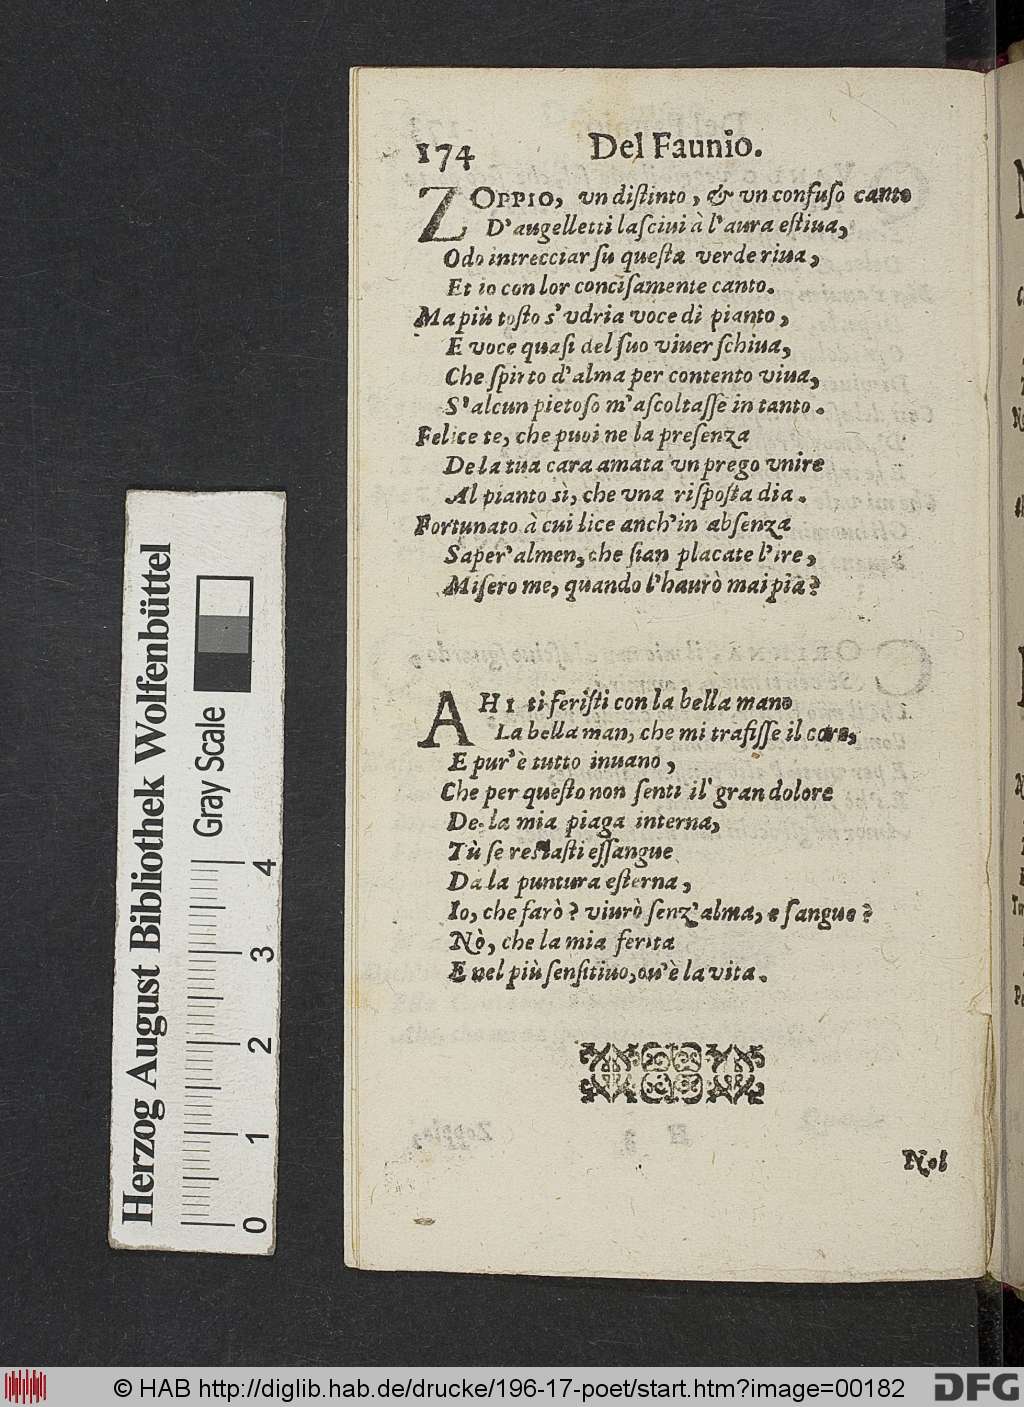 174 Del Faunio.
ZOPPIO, vn distinto, & vn confuso canto
D'augelletti lasciui à l'aura estiua,
Odo intrecciar su questa verde riua,
Et io con lor concisamente canto.
Ma più tosto s'vdria voce di pianto,
E voce quasi del suo viuer schiua,
Che spirto d'alma per contento viua,
S'alcun pietoso m'ascoltasse in tanto.
Felice te, che puoi ne la presenza
De la tua cara amata vn prego vnire
Al pianto sì, che vna risposta dia.
Fortunato à cui lice anch'in absenza
Saper'almen, che sian placate l'ire,
Misero me, quando l'haurò mai pia?
AHI ti feristi con la bella mano
La bella man, che mi trafisse il core,
E pur'è tutto inuano,
Che per questo non senti il gran dolore
De la mia piaga interna,
Tù se restasti essangue
Da la puntura esterna,
Io, che farò? viurò senz'alma, e sangue?
Nò, che la mia ferita
E nel più sensitiuo, ou'è la vita.
Nel
Herzog August Bibliothek Wolfenbüttel
Gray Scale
0 1 2 3 4
© HAB http://diglib.hab.de/drucke/196-17-poet/start.htm?image=00182
DFG